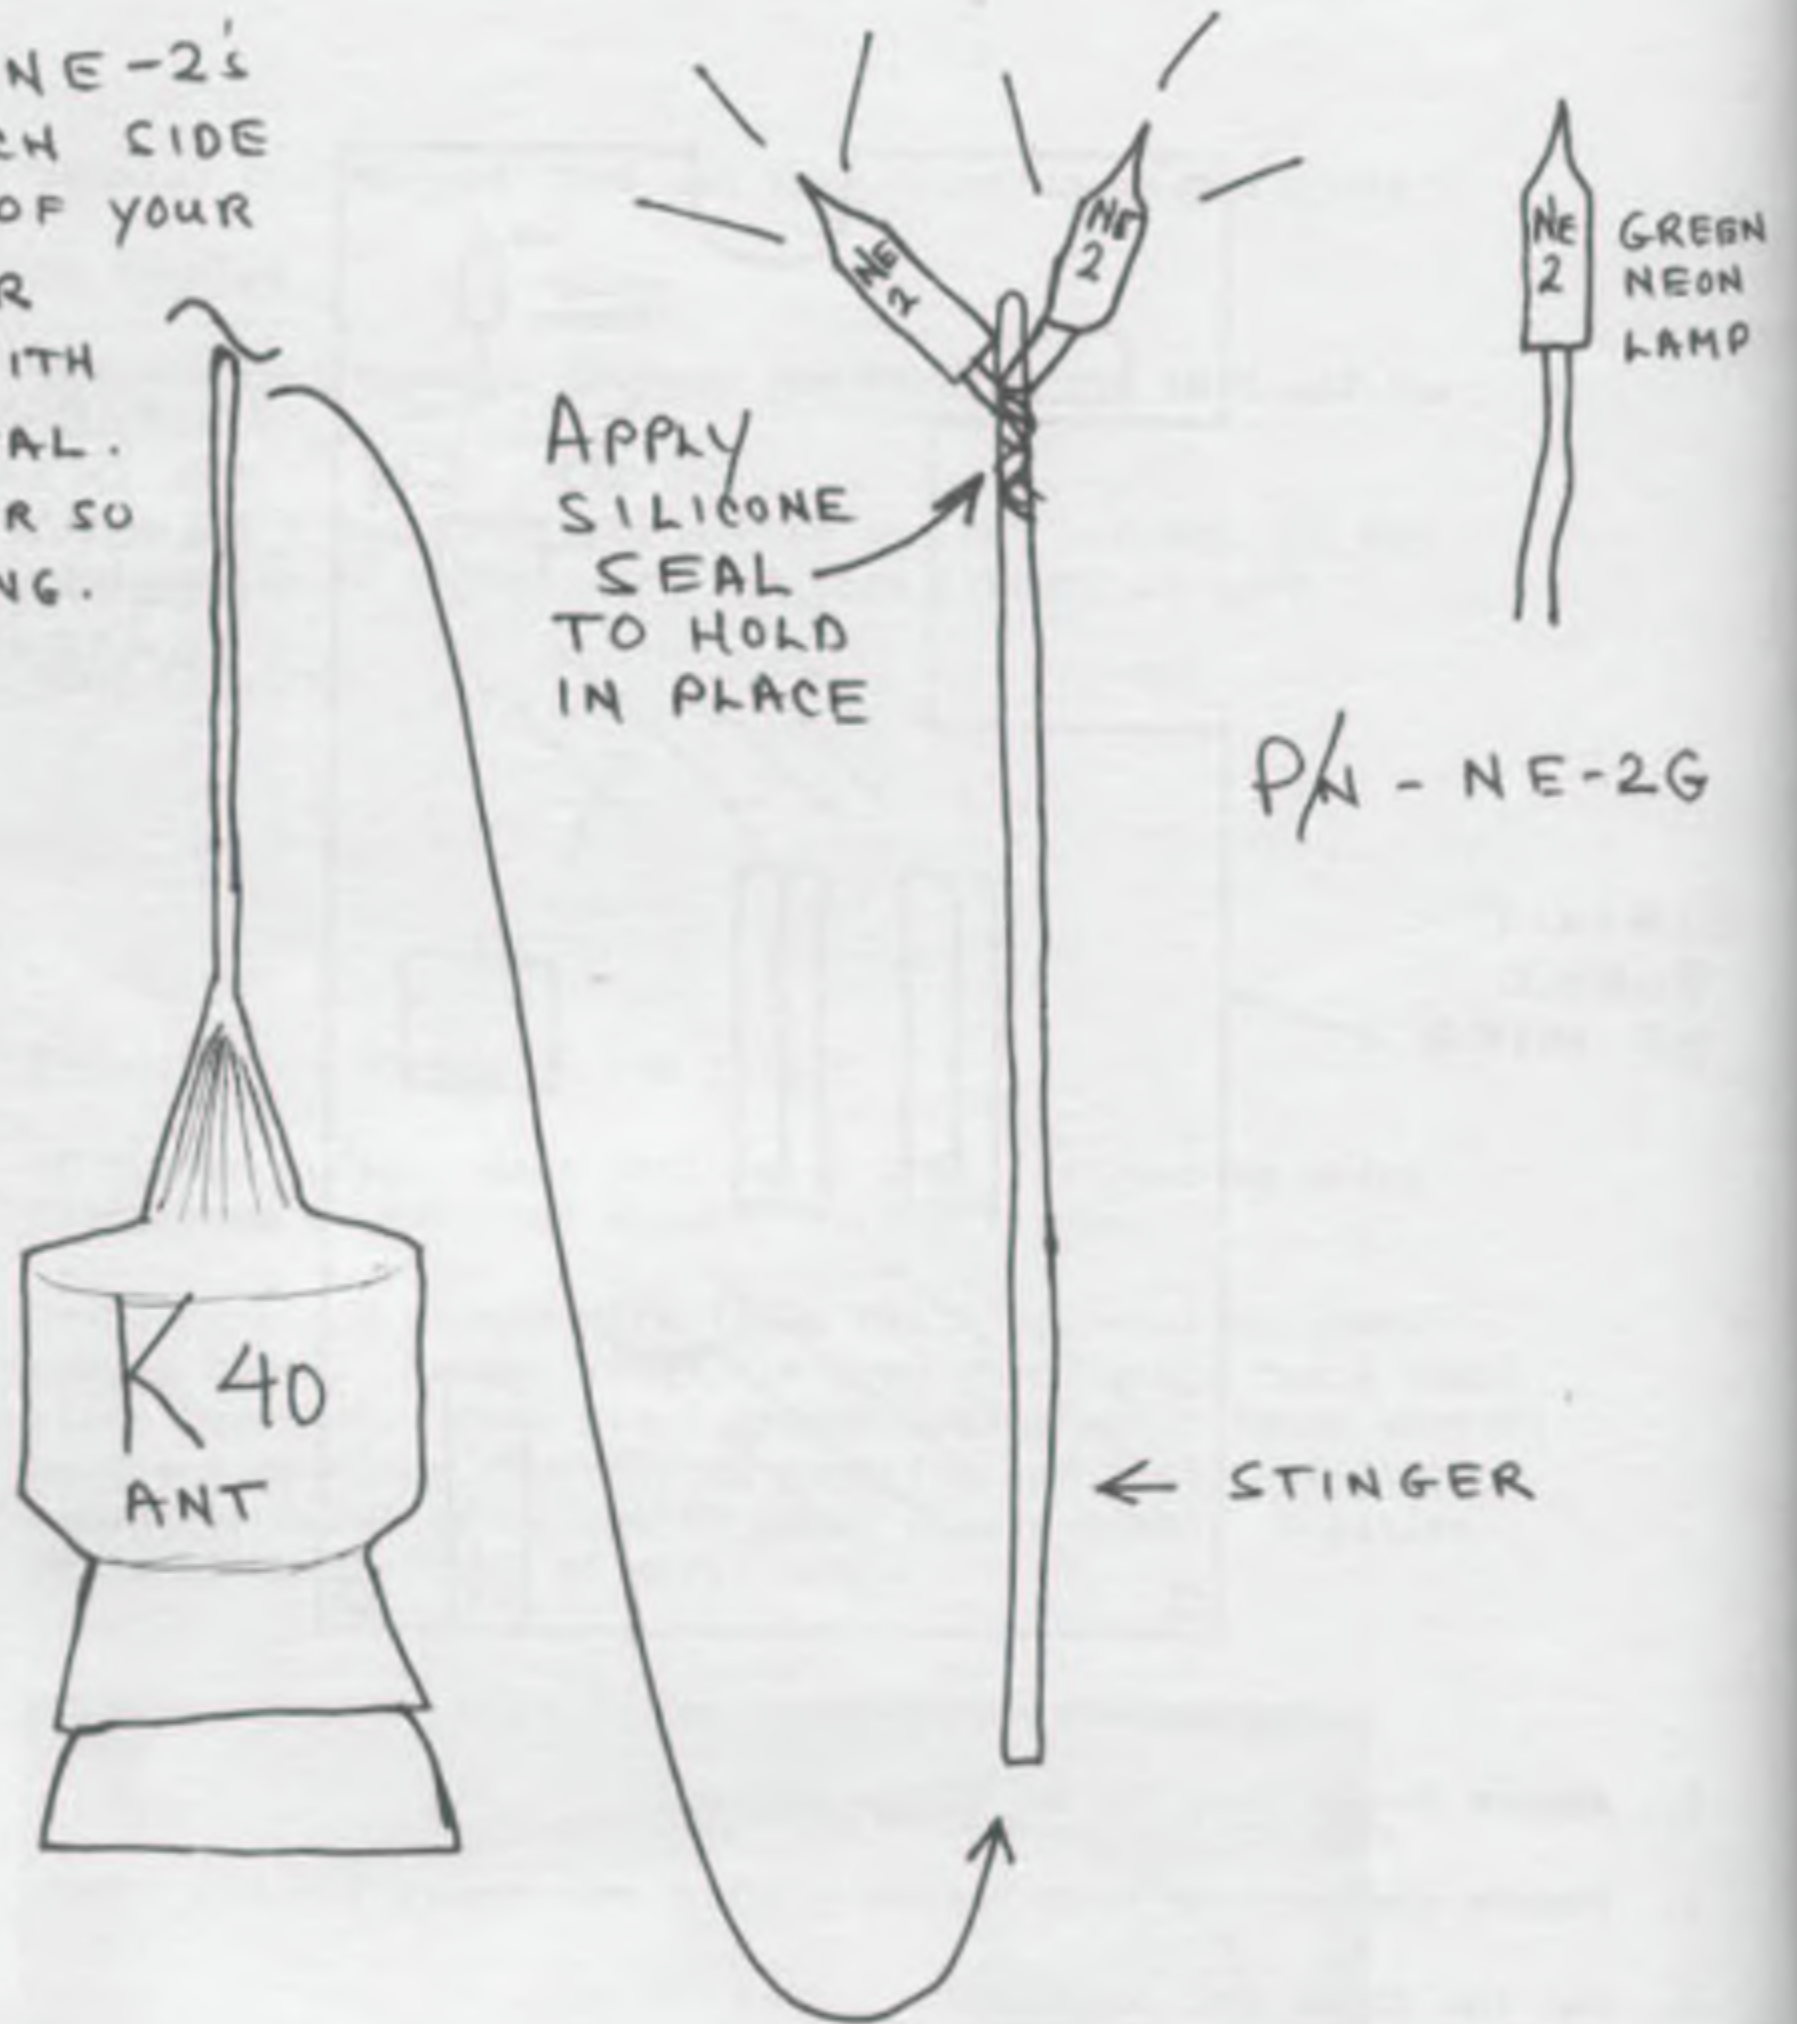 NE-2's
CH SIDE
OF YOUR
R
ITH
AL.
R SO
NG.
APPLY
SILICONE
SEAL
TO HOLD
IN PLACE
NE
2
NE
2
NE
2
GREEN
NEON
LAMP
P/N - NE-2G
K40
ANT
← STINGER